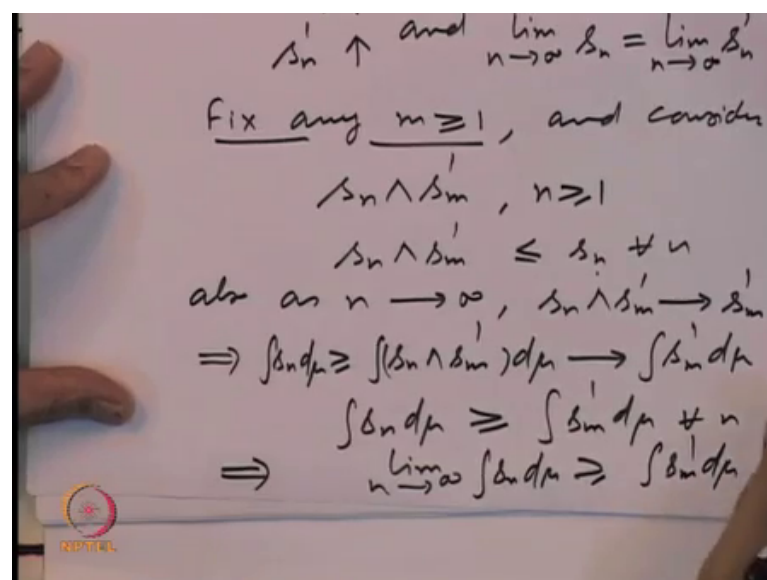 s'n ↑ and lim n→∞ sn = lim n→∞ s'n
Fix any m ≥ 1, and consider
sn ∧ s'm, n ≥ 1
sn ∧ s'm ≤ sn ∀ n
also as n → ∞, sn ∧ s'm → s'm
⟹ ∫sn dμ ≥ ∫(sn ∧ s'm) dμ → ∫s'm dμ
∫sn dμ ≥ ∫s'm dμ ∀ n
⟹ lim n→∞ ∫sn dμ ≥ ∫s'm dμ
NPTEL